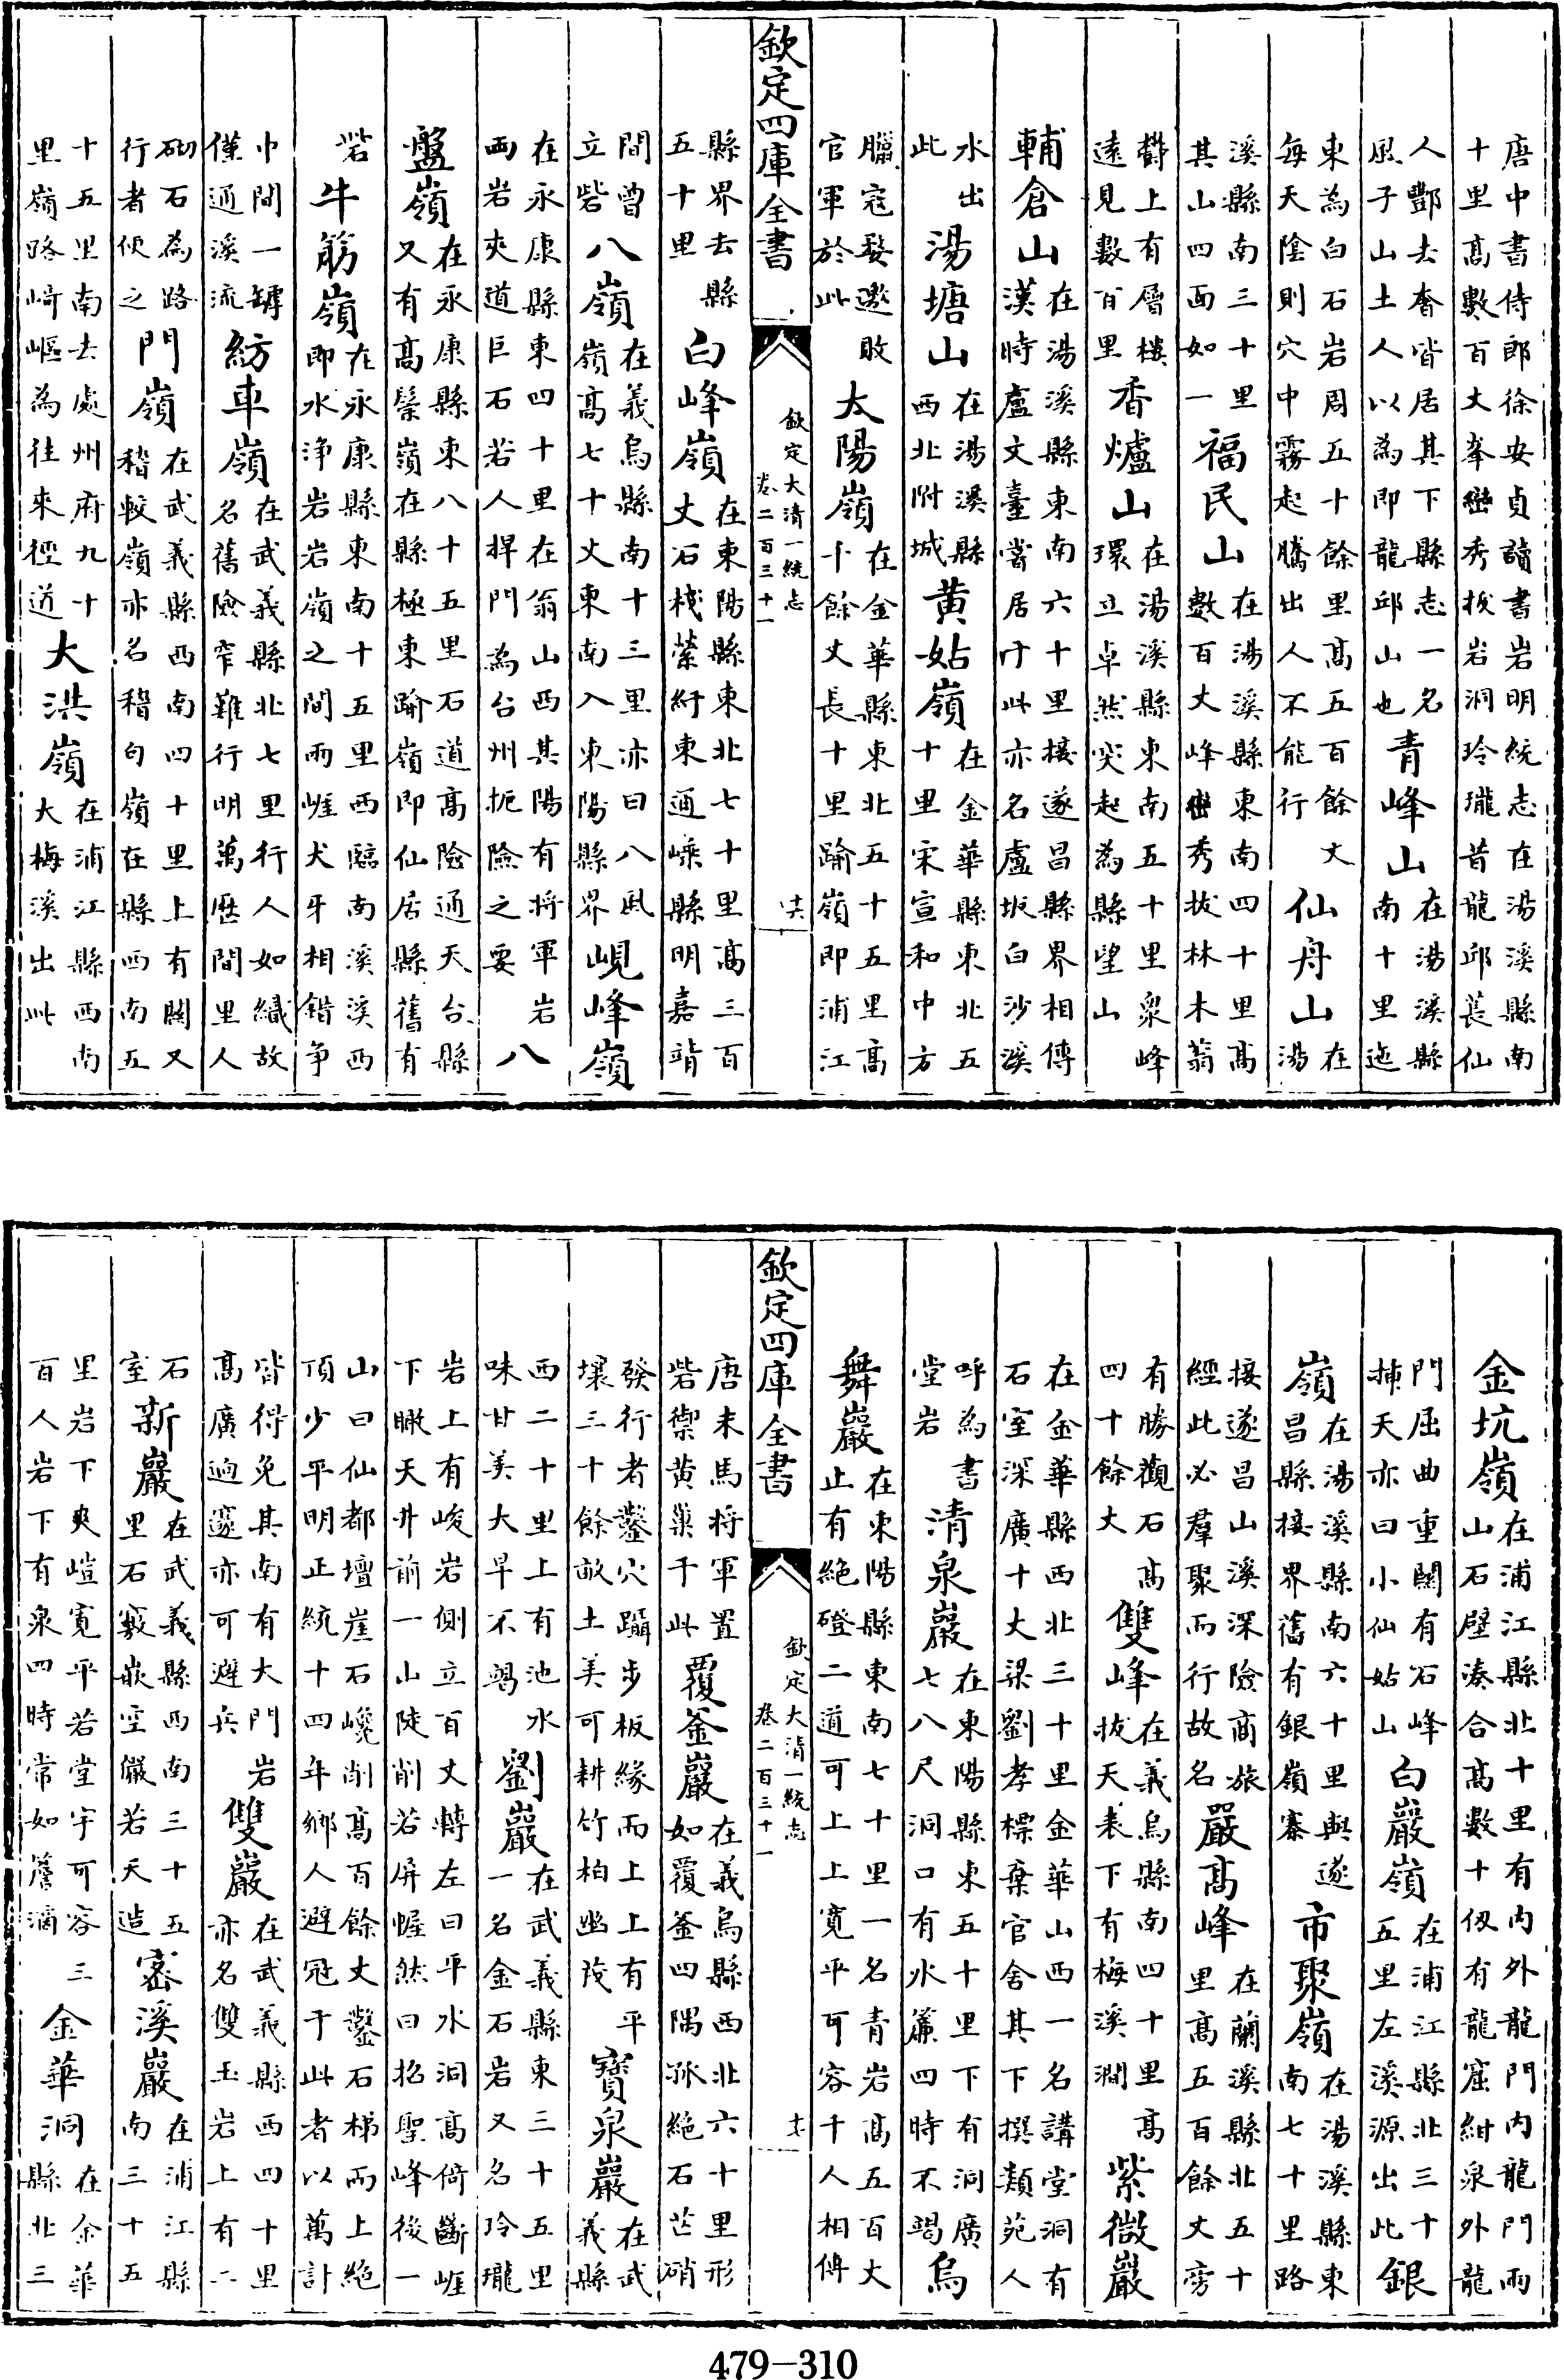 唐中書侍郎徐安貞讀書岩明統志在湯溪縣南
十里髙數百丈峯巒秀拔岩洞玲瓏昔龍邱萇仙
人酆去奢皆居其下縣志一名
風子山土人以為即龍邱山也
青峰山
在湯溪縣
南十里迤
東為白石岩周五十餘里髙五百餘丈
每天陰則穴中霧起騰出人不能行
仙舟山
在
湯
溪縣南三十里
其山四面如一
福民山
在湯溪縣東南四十里髙
數百丈峰巒秀拔林木蓊
鬱上有層樓
遠見數百里
香爐山
在湯溪縣東南五十里衆峰
環立卓然突起為縣望山
輔倉山
在湯溪縣東南六十里接遂昌縣界相傳
漢時盧文臺嘗居于此亦名盧坂白沙溪
水出
此
湯塘山
在湯溪縣
西北附城
黄姑嶺
在金華縣東北五
十里宋宣和中方
臘寇婺邀敗
官軍於此
太陽嶺
在金華縣東北五十五里髙
十餘丈長十里踰嶺即浦江
欽定四庫全書
欽定大清一統志
卷二百三十一
十六
縣界去縣
五十里
白峰嶺
在東陽縣東北七十里髙三百
丈石棧縈紆東通嵊縣明嘉靖
間曽
立砦
八嶺
在義烏縣南十三里亦曰八風
嶺髙七十丈東南入東陽縣界
峴峰嶺
在永康縣東四十里在翁山西其陽有将軍岩
两岩夾道巨石若人捍門為台州扼險之要
八
盤嶺
在永康縣東八十五里石道髙險通天台縣
又有髙鬃嶺在縣極東踰嶺即仙居縣舊有
砦
牛筋嶺
在永康縣東南十五里西臨南溪溪西
即水浄岩岩嶺之間两崕犬牙相錯争
中間一罅
僅通溪流
紡車嶺
在武義縣北七里行人如織故
名舊險窄難行明萬厯間里人
砌石為路
行者便之
門嶺
在武義縣西南四十里上有闗又
稽較嶺亦名稽勾嶺在縣西南五
十五里南去處州府九十
里嶺路﨑嶇為往來徑道
大洪嶺
在浦江縣西南
大梅溪出此
金坑嶺
在浦江縣北十里有内外龍門内龍門两
山石壁湊合髙數十仭有龍窟紺泉外龍
門屈曲重闗有石峰
揷天亦曰小仙姑山
白巖嶺
在浦江縣北三十
五里左溪源出此
銀
嶺
在湯溪縣南六十里與遂
昌縣接界舊有銀嶺寨
市聚嶺
在湯溪縣東
南七十里路
接遂昌山溪深險商旅
經此必羣聚而行故名
嚴髙峰
在蘭溪縣北五十
里髙五百餘丈旁
有勝觀石髙
四十餘丈
雙峰
在義烏縣南四十里髙
拔天表下有梅溪澗
紫微巖
在金華縣西北三十里金華山西一名講堂洞有
石室深廣十丈梁劉孝標棄官舍其下撰類苑人
呼為書
堂岩
清泉巖
在東陽縣東五十里下有洞廣
七八尺洞口有水簾四時不竭
烏
舞巖
在東陽縣東南七十里一名青岩髙五百丈
止有絶磴二道可上上寛平可容千人相傳
欽定四庫全書
欽定大清一統志
卷二百三十一
十七
唐末馬将軍置
砦禦黄巢于此
覆釜巖
在義烏縣西北六十里形
如覆釜四隅孤絶石芒硝
發行者鑿穴躡步板縁而上上有平
壤三十餘畝土美可耕竹柏幽茂
寳泉巖
在武
義縣
西二十里上有池水
味甘美大旱不竭
劉巖
在武義縣東三十五里
一名金石岩又名玲瓏
岩上有峻岩側立百丈轉左曰平水洞髙倚斷崕
下瞰天井前一山陡削若屏幄然曰招聖峰後一
山曰仙都壇崖石巉削髙百餘丈鑿石梯而上絶
頂少平明正統十四年鄉人避冦于此者以萬計
皆得免其南有大門岩
髙廣逈邃亦可避兵
雙巖
在武義縣西四十里
亦名雙玉岩上有二
石
室
新巖
在武義縣西南三十五
里石竅嵌空儼若天造
密溪巖
在浦江縣
南三十五
里岩下爽塏寛平若堂宇可容三
百人岩下有泉四時常如簷滴
金華洞
在金華
縣北三
479-310